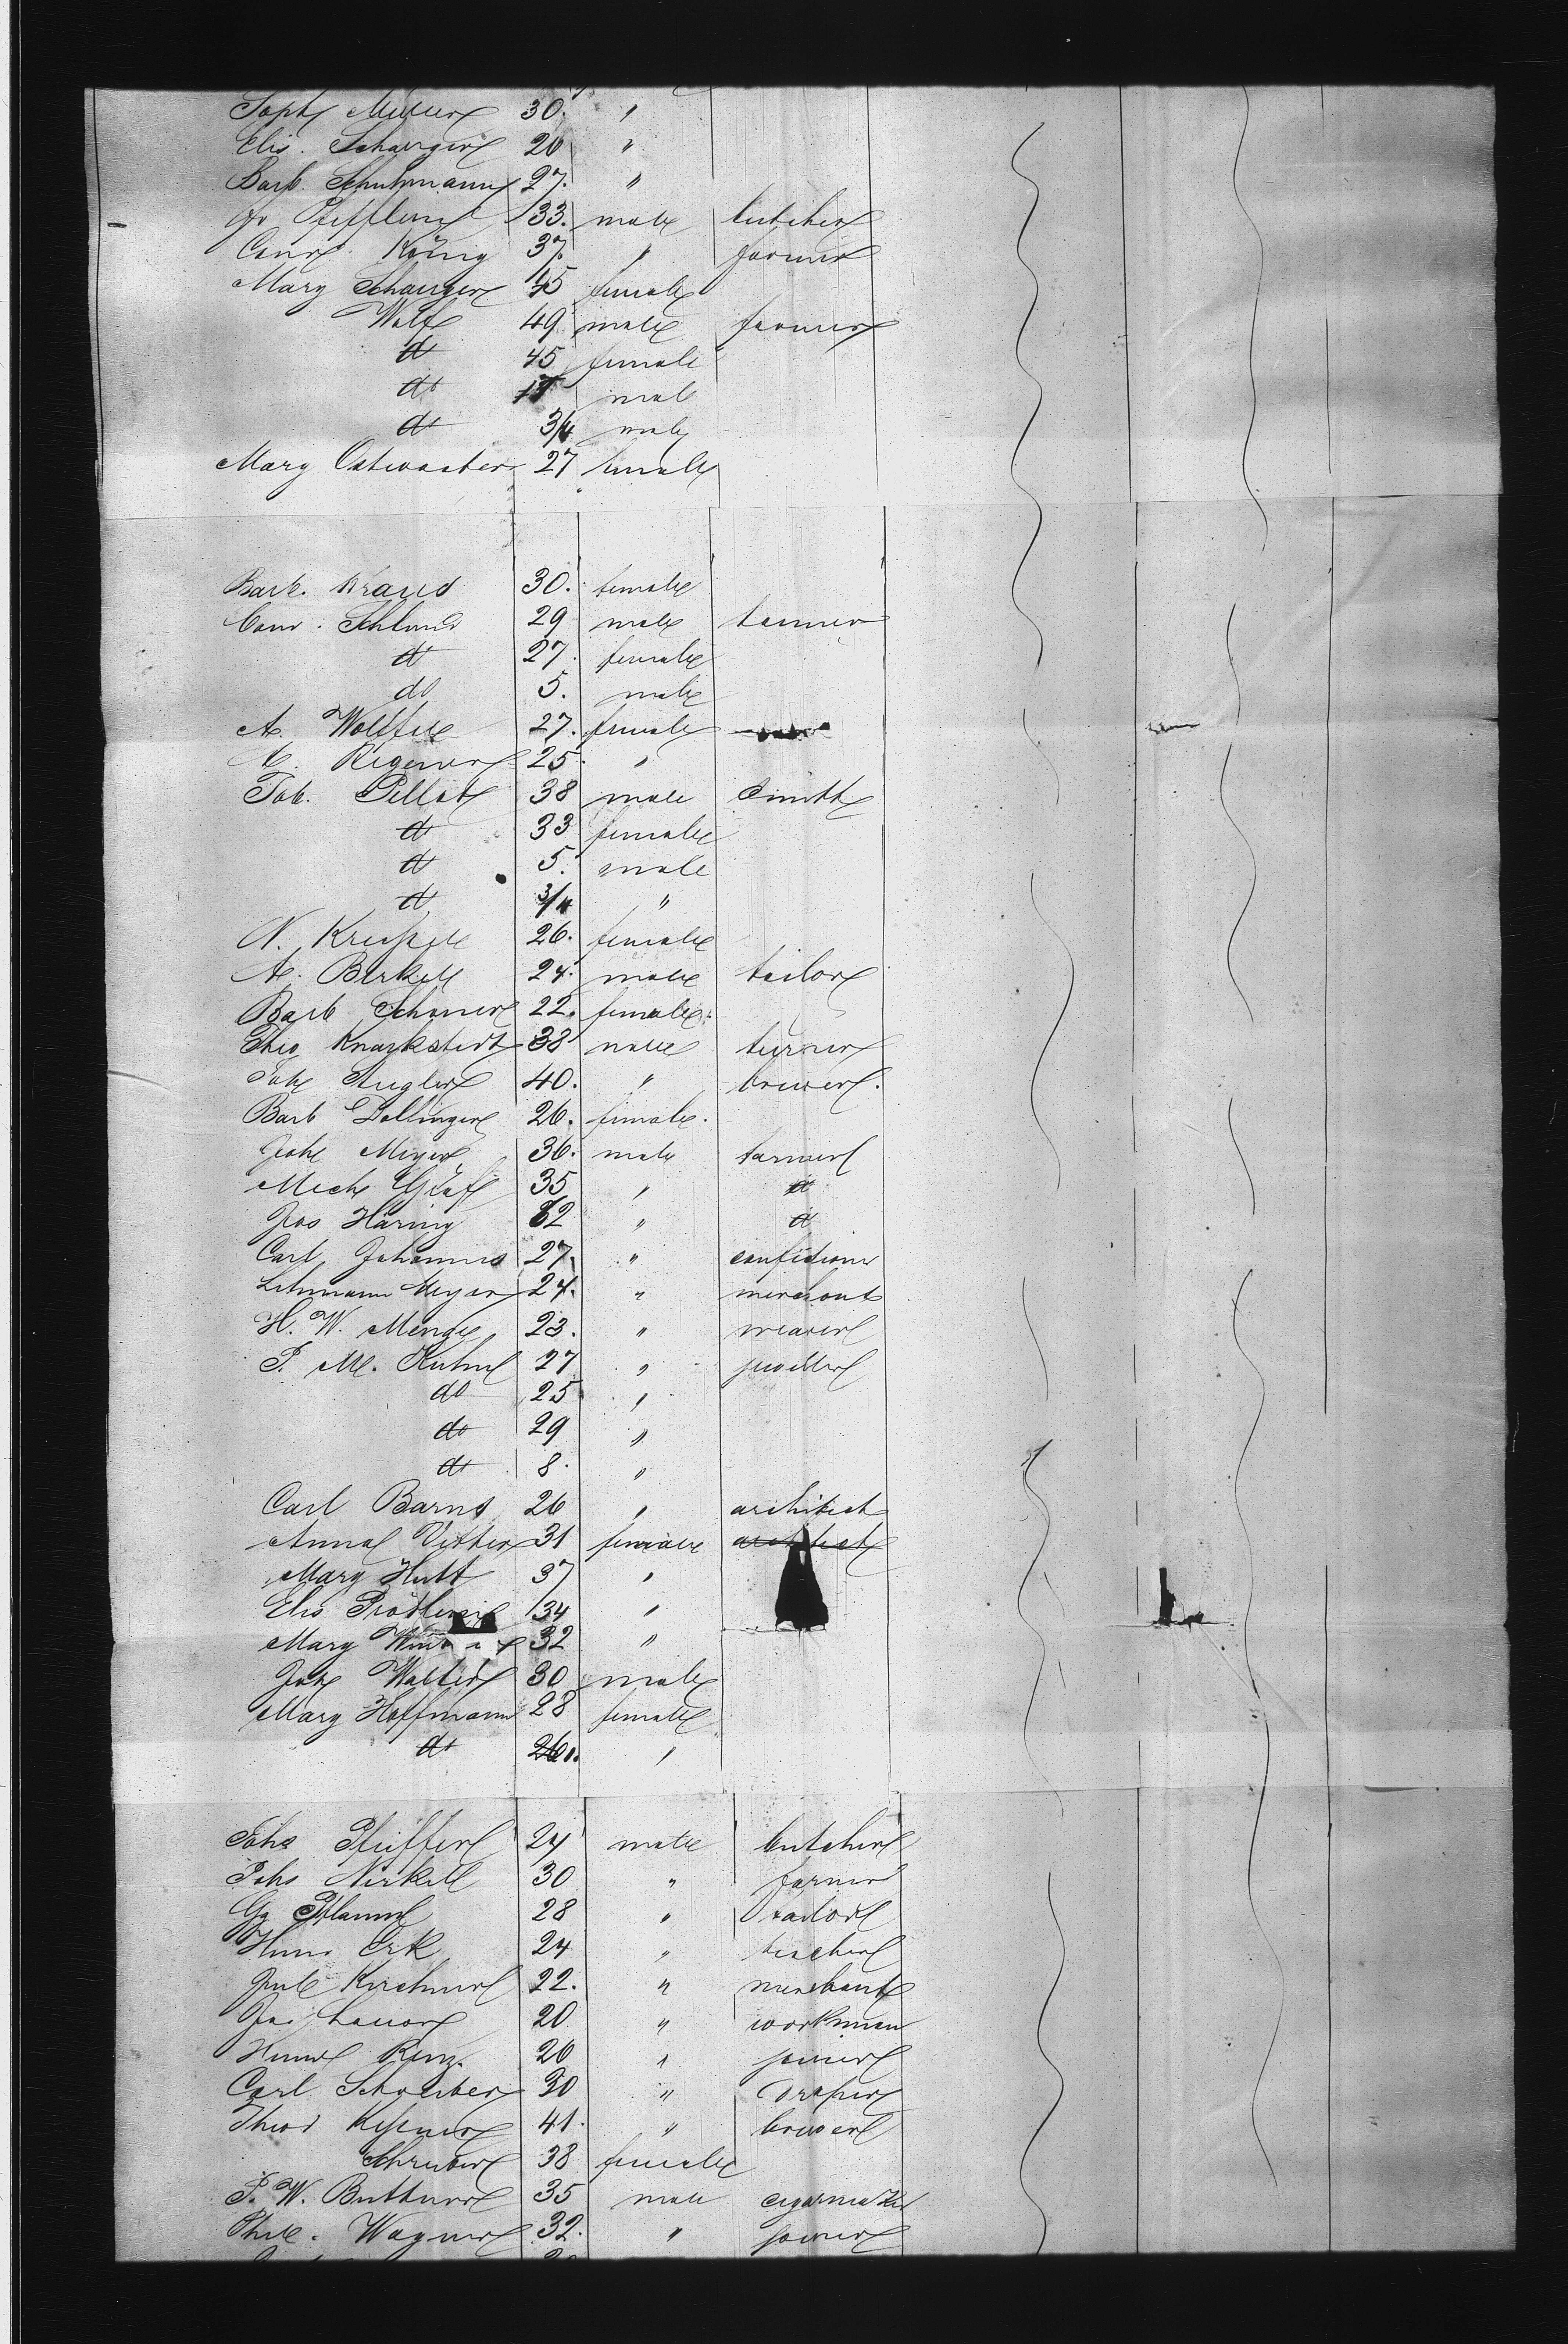 Soph Müller 30. "
Elis. Schauger 26 "
Barb. Schuhmann 27. "
Go Pfeiffler 33. male butcher
Conr König 37. " farmer
Mary Schauger 45 female
Wolf 49 male farmer
do 45 female
do 17 male
do 3/4 male
Mary Ostwaster 27 female
Barb. Kraus 30. female
Conr. Schlund 29 male farmer
do 27. female
do 5. male
A. Wölffel 27. female
C. Regener 25. "
Joh. Pellot 38 male Smith
do 33 female
do 5. male
do 3/4 "
N. Kreissell 26. female
A. Berkell 24. male tailor
Barb Schoner 22. female
Theo Knarkstedt 38 male turner
Joh Angler 40. " brewer.
Barb Dollinger 26. female.
Joh Meyer 36. male farmer
Mich Gräf 35 " do
Jos Häring 62 " do
Carl Johannes 27. " confitioner
Lehmann Meyer 24. " merchant
H. W. Menge 23. " weaver
P. M. Kuhn 27 " jeweller
do 25 "
do 29 "
do 8. "
Carl Barns 26 " architect
Anna Vetter 31 female architect
Mary Hutt 37 "
Elis 34 "
Mary 32 "
Joh Walter 30 male
Mary Hoffmann 28 female
do 26. "
Johs Pfeiffer 24 male butcher
Johs Nerkell 30 " farmer
Go Pflaum 28 " tailor
Heinr Erk 24 " teacher
Jule Kirchner 22. " merchant
Jac. Lauer 20 " workman
Heinr Renz. 26 " joiner
Carl Schreiber 30 " draper
Theod Kessner 41. " brewer
Schreiber 38 female
P. W. Buttner 35 male cigarmaker
Phil. Wagner 32. " joiner